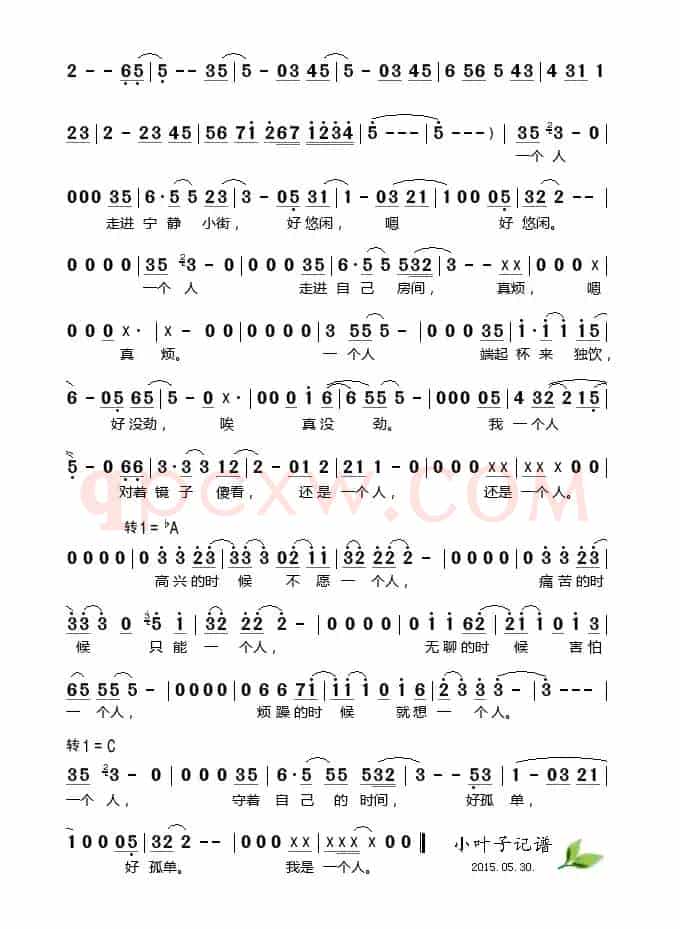 2 - - 65 | 5 - - 35 | 5 - 03 45 | 5 - 03 45 | 6 56 5 43 | 4 31 1
23 | 2 - 23 45 | 56 71 267 1234 | 5 - - - | 5 - - - ) | 35 3 - 0
一个 人
000 35 | 6· 5 5 23 | 3 - 05 31 | 1 - 03 21 | 1 00 05 | 32 2 - -
走进 宁 静 小街， 好悠闲， 嗯 好 悠闲。
0 0 0 0 | 35 3 - 0 | 0 0 0 35 | 6· 5 5 532 | 3 - - xx | 0 0 0 x
一个 人 走进 自 己 房间， 真烦， 嗯
00 0 x· | x - 00 | 0000 | 3 55 5 - | 00 0 35 | 1· 1 1 15
真 烦。 一 个人 端起 杯 来 独饮，
6 - 05 65 | 5 - 0 x· | 000 16 | 6 55 5 - | 000 05 | 4 32 2 15
好没劲， 唉 真没 劲。 我 一个人
5 - 0 66 | 3·3 3 12 | 2 - 01 2 | 21 1 - 0 | 00 0 xx | xx x 00
对着 镜 子 傻看， 还是 一个人， 还是 一个人。
转1=♭A
0 0 0 0 | 0 3 3 23 | 33 3 02 11 | 32 22 2 - | 0000 | 0 3 3 23
高兴的时 候 不 愿 一 个人， 痛苦的时
33 3 0 5 1 | 32 22 2 - | 0 0 0 0 | 0 1 1 62 | 21 1 0 1 3
候 只 能 一 个人， 无聊的时 候 害怕
65 55 5 - | 0000 | 0 6 6 71 | 11 1 0 1 6 | 2 3 3 3 - | 3 - - -
一 个人， 烦躁的时 候 就想 一 个 人。
转1=C
35 3 - 0 | 000 35 | 6· 5 55 532 | 3 - - 53 | 1 - 03 21
一个 人， 守着 自 己 的 时间， 好孤 单，
1 0 0 05 | 32 2 - - | 000 xx | xx x x 00
好 孤单。 我是 一个人。
小叶子记谱
2015.05.30.
qpcxw.com